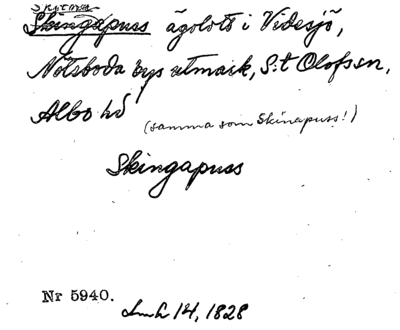 Skingapuss ägolott i Videsjö,
Nötsboda bys utmark, S:t Olof sn,
Albo hd
(samma som Skinapuss!)
Skingapuss
Nr 5940.
14, 1828